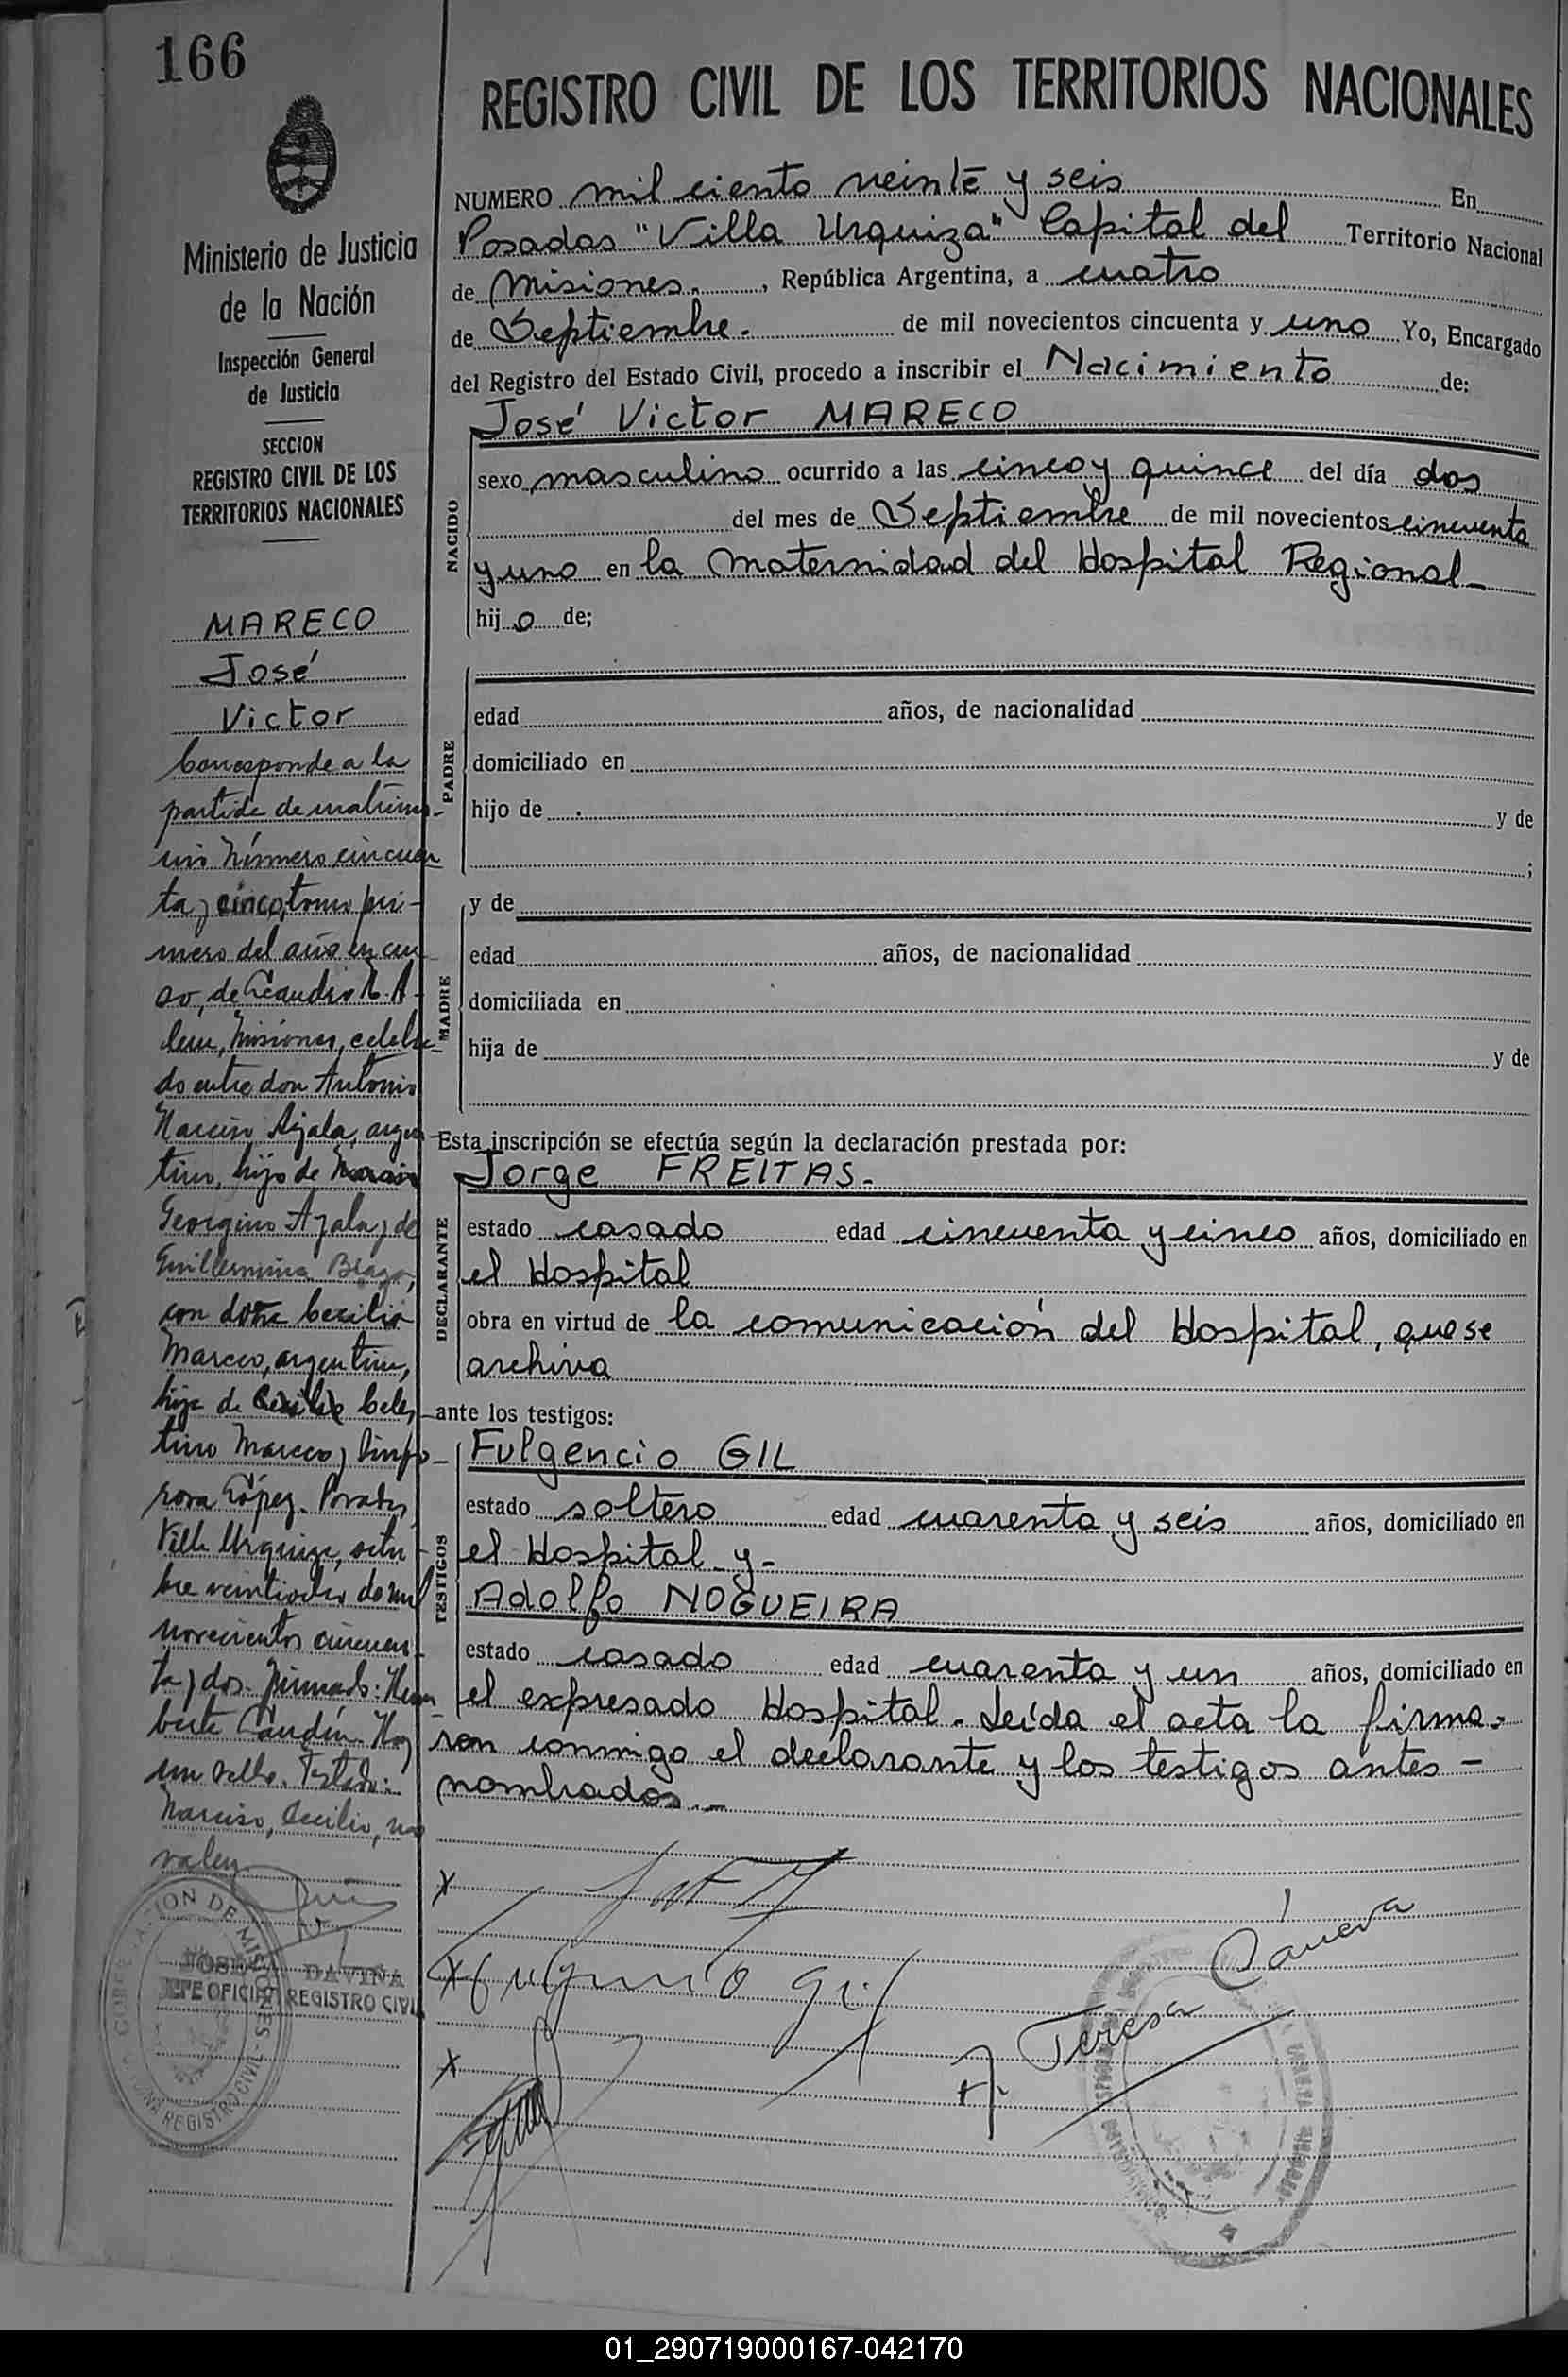 166
Ministerio de Justicia
de la Nación
Inspección General
de Justicia
SECCION
REGISTRO CIVIL DE LOS
TERRITORIOS NACIONALES
MARECO
José
Victor
Corresponde a la
partida de matrimo-
nio Número cincuen
ta y cinco, tomo pri-
mero del año en cur
so, de Leandro N. A-
lem, Misiones, celebra
do entre don Antonio
Narciso Ayala, argen
tino, hijo de Narciso
Georgino Ayala y de
Guillermina
con doña Cecilia
Mareco, argentina,
hija de Cecilio Celes
tino Mareco y Sinfo-
rosa López. Posadas,
Villa Urquiza, octu-
bre veintidós de mil
novecientos cincuen-
ta y dos. Firmado: Hum
berto Hay
un sello. Testado:
Narciso, Cecilio, no
valen.
JOSE DAVIÑA
JEFE OFICINA REGISTRO CIVIL
GOBERNACION DE MISIONES
REGISTRO CIVIL
REGISTRO CIVIL DE LOS TERRITORIOS NACIONALES
NUMERO mil ciento veinte y seis En
Posadas "Villa Urquiza" Capital del Territorio Nacional
de Misiones. , República Argentina, a cuatro
de Septiembre. de mil novecientos cincuenta y uno Yo, Encargado
del Registro del Estado Civil, procedo a inscribir el Nacimiento de:
José Victor MARECO
NACIDO
sexo masculino ocurrido a las cinco y quince del día dos
del mes de Septiembre de mil novecientos cincuenta
y uno en la Maternidad del Hospital Regional
hijo de;
PADRE
edad años, de nacionalidad
domiciliado en
hijo de y de
;
MADRE
y de
edad años, de nacionalidad
domiciliada en
hija de y de
Esta inscripción se efectúa según la declaración prestada por:
DECLARANTE
Jorge FREITAS.
estado casado edad cincuenta y cinco años, domiciliado en
el Hospital
obra en virtud de la comunicación del Hospital, que se
archiva
ante los testigos:
TESTIGOS
Fulgencio GIL
estado soltero edad cuarenta y seis años, domiciliado en
el Hospital y-
Adolfo NOGUEIRA
estado casado edad cuarenta y un años, domiciliado en
el expresado Hospital. Leída el acta la firma-
ron conmigo el declarante y los testigos antes-
nombrados.-
x
x Fulgencio Gil
x
A. Teresa Cáneva
01_290719000167-042170